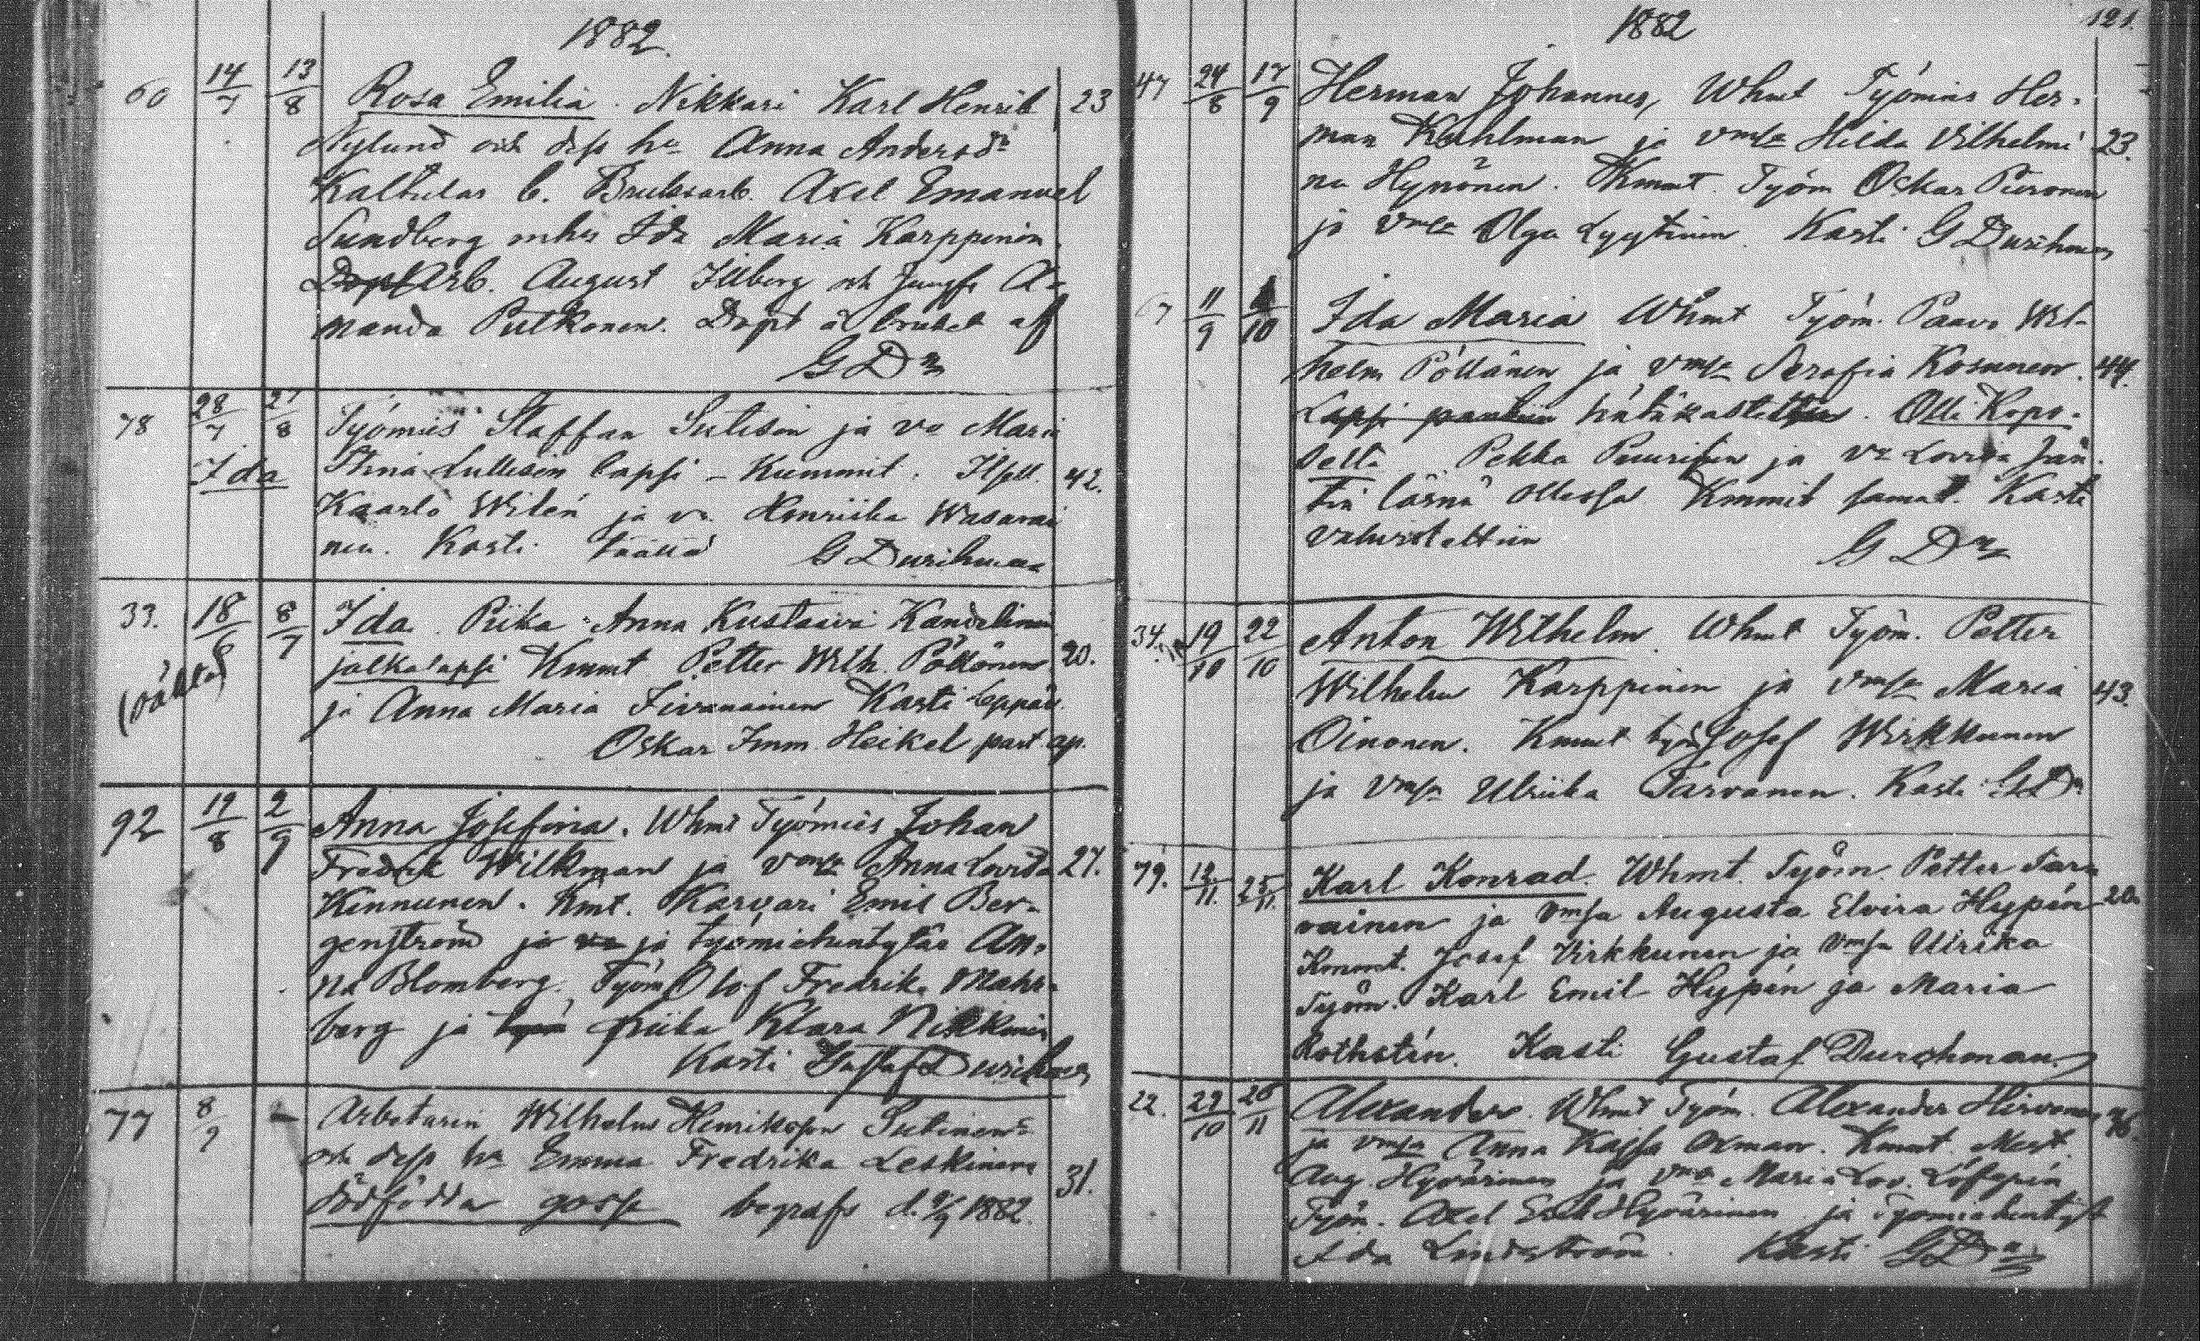 1882.
60 14/7 13/8 Rosa Emilia. Nikkari Karl Henrik 23
Nylund och dess hu Anna Andersdr
Kaltulas b. Bruksarb. Axel Emanuel
Sundberg mhu Ida Maria Karppinen.
Dopt Arb. August Illberg och Jungfr A-
manda Putkonen. Döpt å bruket af
G D n
78 28/7 27/8 Työmies Staffan Sutisen ja vo Maria
Ida Stina Lullisen lapsi - Kummit. Itsell. 42.
Kaarlo Wilén ja vo. Henriika Wasarai
nen. Kasti täällä G Durchman
33. 18/6 8/7 Ida. Piika Anna Kustaava Kandelinin
jalkalapsi Kmmt Petter Wilh. Pöllönen 20.
ja Anna Maria Kasti Leppäv.
Oskar Imm. Heikel past. ap.
92 19/8 2/9 Anna Josefina. Whmt Työmies Johan
Fredrik Wilkman ja vmsa Anna Lovisa 27.
Kinnunen. Kmt. Karvari Emil Ber-
genström ja va ja työmiehentytär An-
na Blomberg. Työm Olof Fredrik Mahs-
berg ja piika Klara Nikkinin
Kasti Gustaf Durchman
77 8/9 - Arbetaren Wilhelm Henriksson Sutinens
och dess hu Emma Fredrika Leskinens
dödfödda gosse begrafs d. 9/9 1882. 31.
1882 121.
47 24/8 17/9 Herman Johannes, Whmt Työmies Her-
man Kuhlman ja vmsa Hilda Vilhelmi 23.
na Hynönen. Kmmt. Työm Oskar Piironen
ja vmsa Olga Lyytinen. Kasti G Durchman
67 11/9 1/10 Ida Maria Whmt Työm. Paavo Wil-
helm Pöllänen ja vmsa Serafia Kosunen. 44.
Lapsi hätäkastettu. Olli Kopo-
selta Pekka ja va Lovisa Jän
tin läsnä ollessa Kmmit samat. Kasti
vahvistettiin G D n
34. 19/10 22/10 Anton Wilhelm. Whmt Työm. Petter
Wilhelm Karppinen ja vmsa Maria 43.
Oinonen. Kmmt työm Josef Wirkkunen
ja vmsa Ulriika Tarvanen. Kasti G D n
79. 12/11. 25/11. Karl Konrad. Whmt. Työm. Petter Tar-
vainen ja vmsa Augusta Elvira Hypén 20.
Kmmt. Josef Virkkunen ja vmsa Ulrika
Työm. Karl Emil Hypén ja Maria
Rothstén. Kasti Gustaf Durchman.
22. 29/10 26/11 Alexander. Whmt Työm. Alexander Hirvonen
ja vmsa Anna Kajsa Oxman. Kmmt. Mest.
Aug. Hyvärinen ja vmo Maria Lov. Löfgrén
Työm. Axel Hyvärinen ja Työmiehentyt
Ida Lindström. Kasti G D n